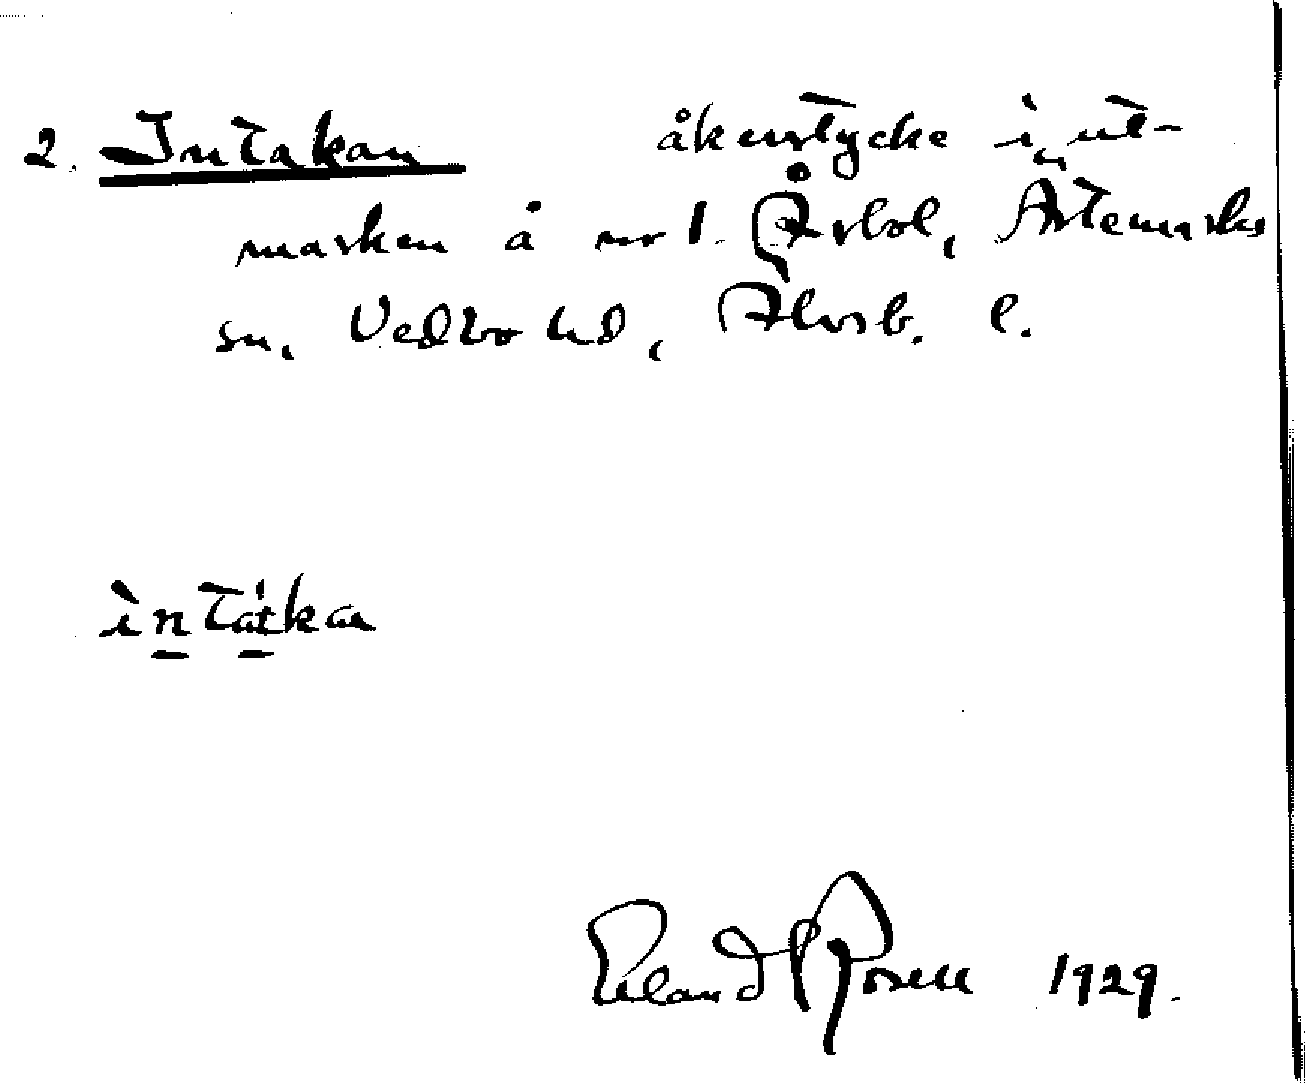 2. Intakan åkerstycke i ut-
marken å nr 1. Årbol, Ärtemarks
sn, Vedbo hd, Älvsb. l.
intåkan
Erland Rosell 1929.